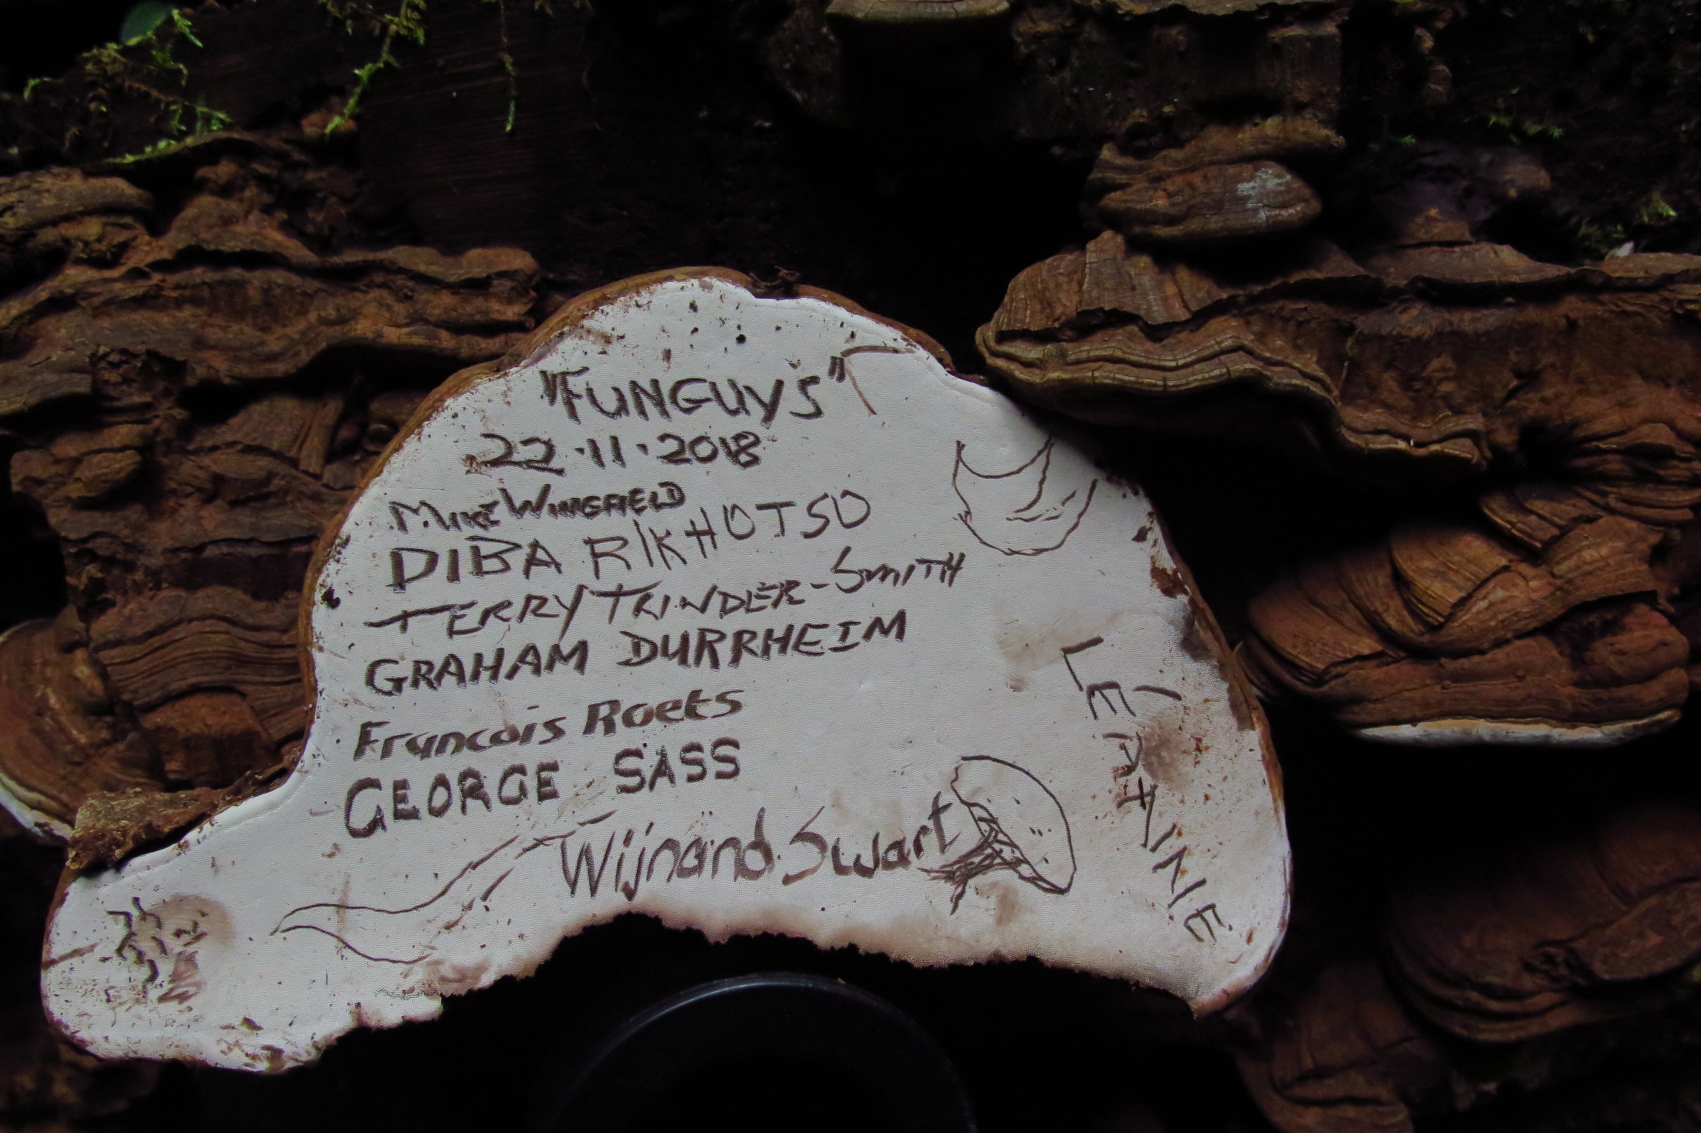 "FUNGUYS"
22·11·2018
MIKE WINGFIELD
DIBA RIKHOTSO
TERRY TRINDER-SMITH
GRAHAM DURRHEIM
Francois Roets
GEORGE SASS
Wijnand Swart